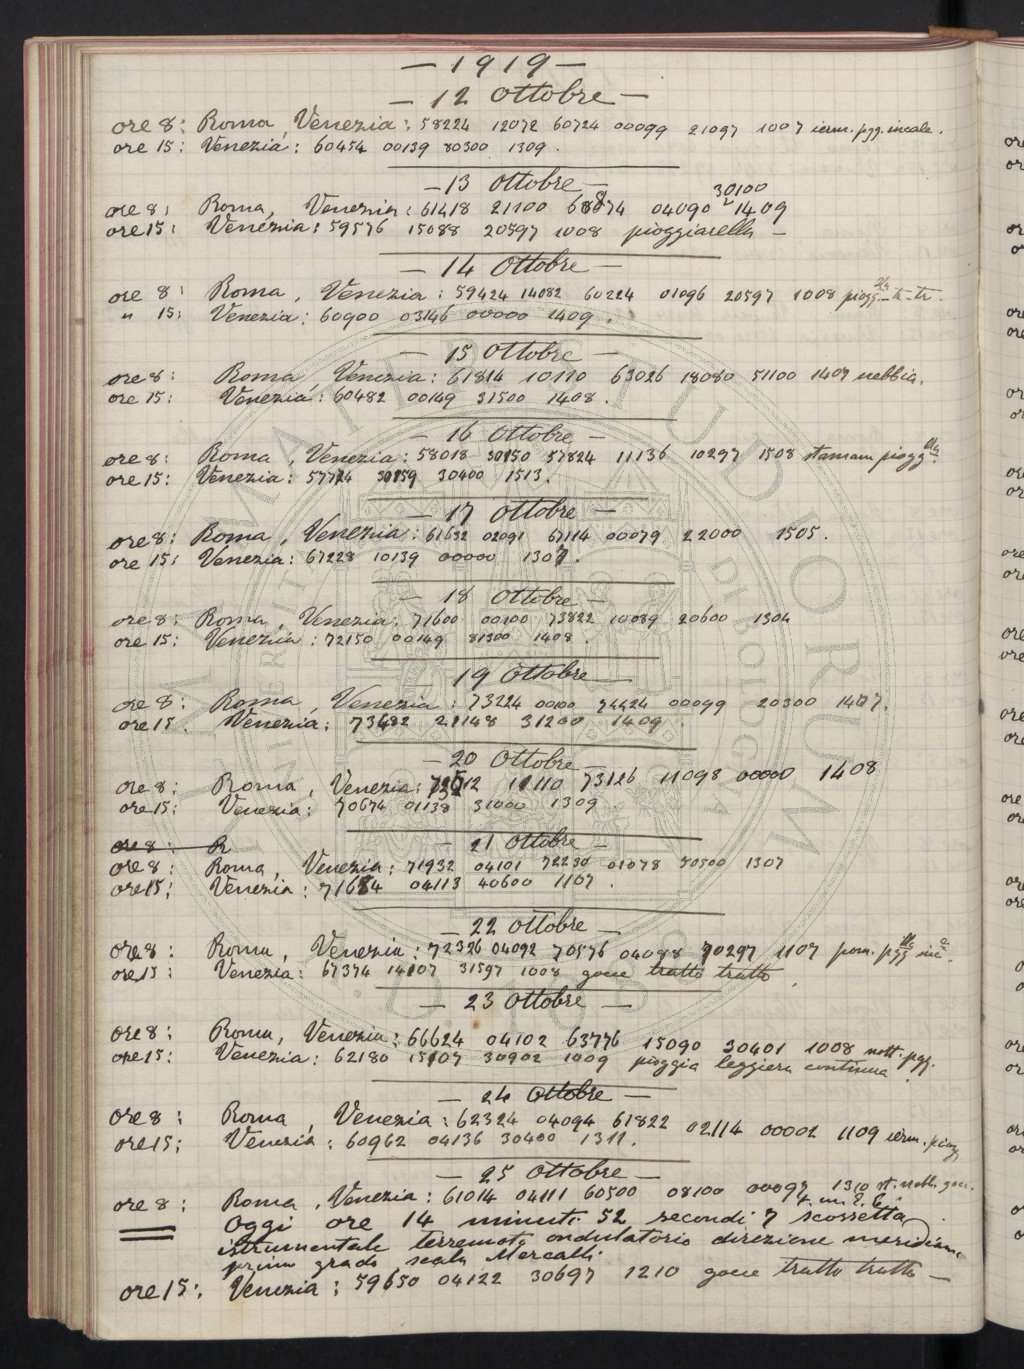 — 1919 —
— 12 Ottobre —
ore 8: Roma, Venezia: 58224 12072 60724 00099 21097 1007 iern. pgg. incalc.
ore 15: Venezia: 60454 00139 80300 1309.
— 13 Ottobre —
30100
ore 8: Roma, Venezia: 61418 21100 04090 1409
ore 15: Venezia: 59576 15088 20597 1008 pioggiarella —
— 14 Ottobre —
ore 8: Roma, Venezia: 59424 14082 60224 01096 20597 1008
" 15: Venezia: 60900 03146 00000 1409.
— 15 Ottobre —
ore 8: Roma, Venezia: 61814 10110 63026 18080 51100 1409 nebbia.
ore 15: Venezia: 60482 00149 31500 1408.
— 16 Ottobre —
ore 8: Roma, Venezia: 58018 30150 57824 11136 10297 1508 stamam piogg
ore 15: Venezia: 57724 30159 30400 1513.
— 17 Ottobre —
ore 8: Roma, Venezia: 61632 02091 67114 00079 22000 1505.
ore 15: Venezia: 67228 10139 00000 1307.
— 18 Ottobre —
ore 8: Roma, Venezia: 71600 00100 73822 10089 20600 1304
ore 15: Venezia: 72150 00149 81300 1408.
— 19 Ottobre —
ore 8: Roma, Venezia: 73224 00100 74424 00099 20300 1407.
ore 15. Venezia: 73482 21148 31200 1409.
— 20 Ottobre —
ore 8: Roma, Venezia: 11110 73126 11098 00000 1408
ore 15: Venezia: 70674 01138 31000 1309
ore 8: R — 21 Ottobre —
ore 8: Roma, Venezia: 71932 04101 72230 01078 70500 1307
ore 15: Venezia: 71684 04113 40600 1107.
— 22 Ottobre —
ore 8: Roma, Venezia: 72326 04092 70576 04098 70297 1107 pom. pgg
ore 15: Venezia: 67374 14107 31597 1008 gocce tratto tratto.
— 23 Ottobre —
ore 8: Roma, Venezia: 66624 04102 63776 15090 30401 1008 nott. pgg.
ore 15: Venezia: 62180 15107 30902 1009 pioggia leggiera continua.
— 24 Ottobre —
ore 8: Roma, Venezia: 62324 04094 61822 02114 00002 1109 iern. piogg
ore 15: Venezia: 60962 04136 30400 1311.
— 25 Ottobre —
ore 8: Roma, Venezia: 61014 04111 60500 08100 00097 1310
Oggi ore 14 minuti 52 secondi 7 scossetta
istrumentale terremoto ondulatorio direzione meridiana
primo grado scala Mercalli.
ore 15: Venezia: 59650 04122 30697 1210 gocce tratto tratto —
ALMA MATER STUDIORUM
UNIVERSITÀ DI BOLOGNA
A.D. 1088